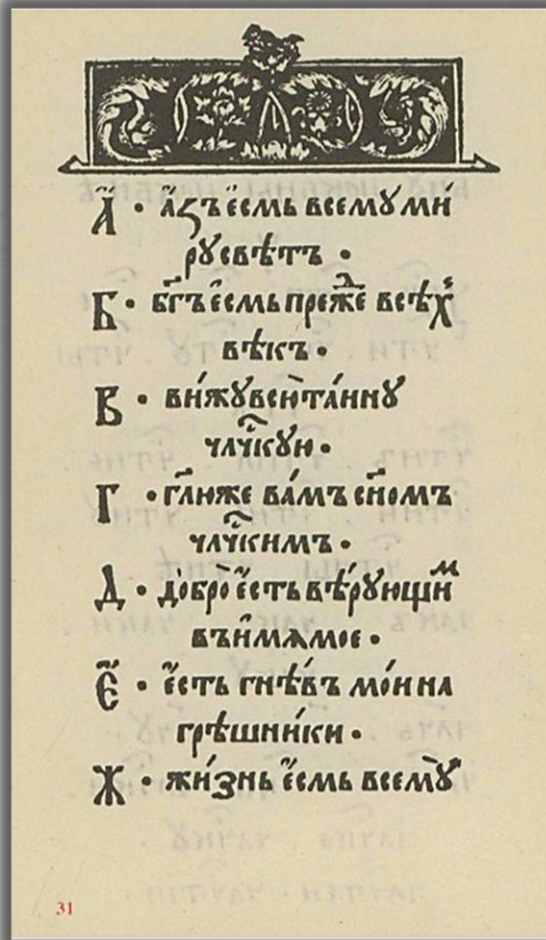 А҆̈ • а҆̈ꙁъ є҆̈смь всемꙋ ми́
рꙋ свѣтъ •
Б • бг҃ъ є҆смь преж̾ⷣе всѣⷯ҇
вѣкъ •
В • ви́жꙋ всю̀ та́инꙋ
чл҃чкꙋю •
Г • гл҃ю же ва́мъ сн҃омъ
чл҃чкимъ •
Д • добро̀ є҆̈сть вѣ́рꙋющиⷨ
въ и҆мѧ мое •
Є҆̈ • є҆̈сть гнѣ́въ мо́и на
грѣшни́ки •
Ж • жи́знь є҆̈смь всемꙋ̀
31